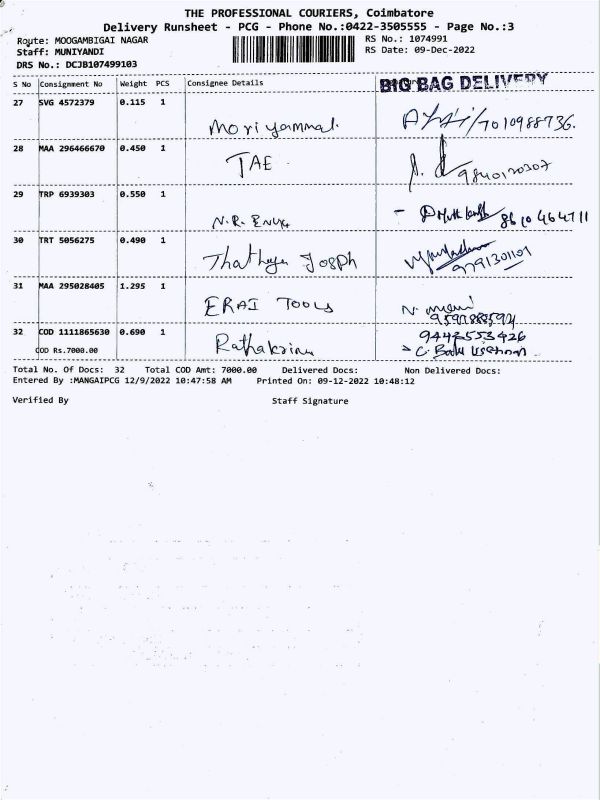 THE PROFESSIONAL COURIERS, Coimbatore
Delivery Runsheet - PCG - Phone No.:0422-3505555 - Page No.:3
Route: MOOGAMBIGAI NAGAR RS No.: 1074991
Staff: MUNIYANDI RS Date: 09-Dec-2022
DRS No.: DCJB107499103
S No Consignment No Weight PCS Consignee Details BIG BAG DELIVERY
27 SVG 4572379 0.115 1
Moriyammal. 7010988736.
28 MAA 296466670 0.450 1
TAE 9840120307
29 TRP 6939303 0.550 1
N.R. 8610464711
30 TRT 5056275 0.490 1
Joseph 9791301101
31 MAA 295028405 1.295 1
ERAI TOOLS N. mani
32 COD 1111865630 0.690 1 9442553426
COD Rs.7000.00
Total No. Of Docs: 32 Total COD Amt: 7000.00 Delivered Docs: Non Delivered Docs:
Entered By :MANGAIPCG 12/9/2022 10:47:58 AM Printed On: 09-12-2022 10:48:12
Verified By Staff Signature